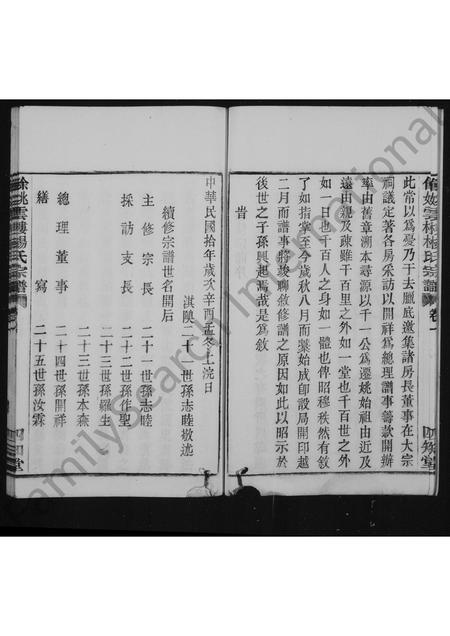 此常以爲憂乃于去臘底邀集諸房長董事在大宗
祠議定著各房采訪以開祥爲總理譜事籌款開辦
率由舊章溯本尋源以千一公爲遷姚始祖由近及
遠由親及疎雖千百里之外如一堂也千百世之外
如一日也千百人之身如一體也俾昭穆秩然有敘
了如指掌至今歲秋八月而藁始成卽設局開印越
二月而譜事將竣聊敘修譜之原因如此以昭示於
後世之子孫興起焉哉是爲敘
旹
中華民國拾年歲次辛酉孟冬上浣日
淇隩二十一世孫志睦敬述
續修宗譜世名開后
主修宗長 二十一世孫志睦
採訪支長 二十二世孫作聖
二十三世孫羅生
二十三世孫本森
總理董事 二十四世孫開祥
繕寫 二十五世孫汝霖
餘姚雲樓楊氏宗譜 卷一
四知堂
FamilySearch International